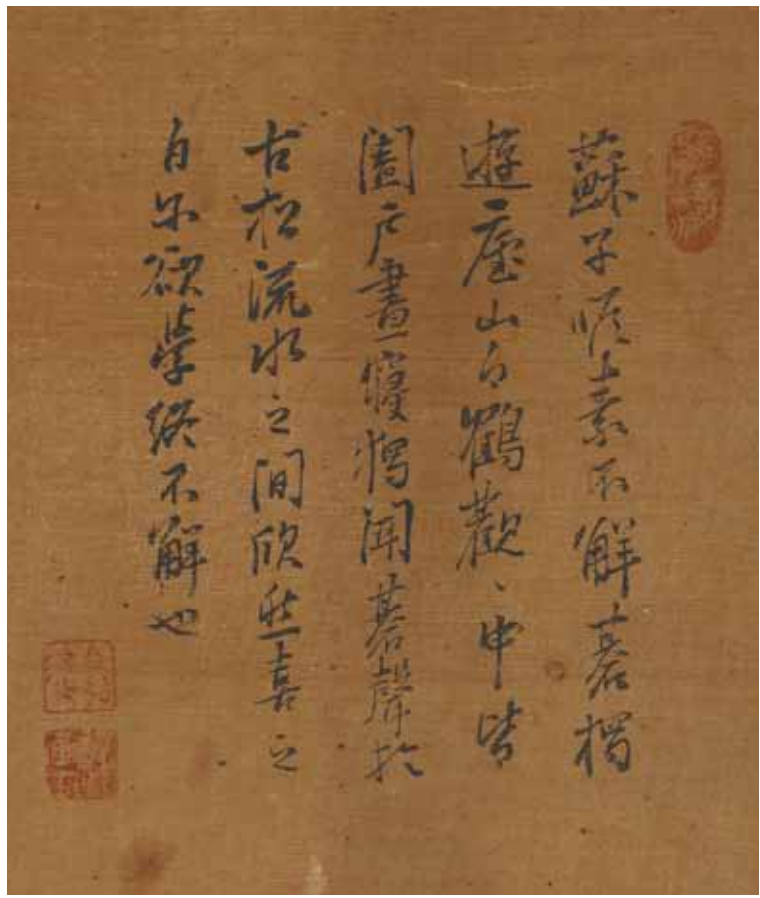 蘇子瞻素不解碁獨
遊廬山白鶴觀々中皆
闔戶晝寢獨聞碁聲於
古松流水之間欣然喜之
自尔欲學終不解也